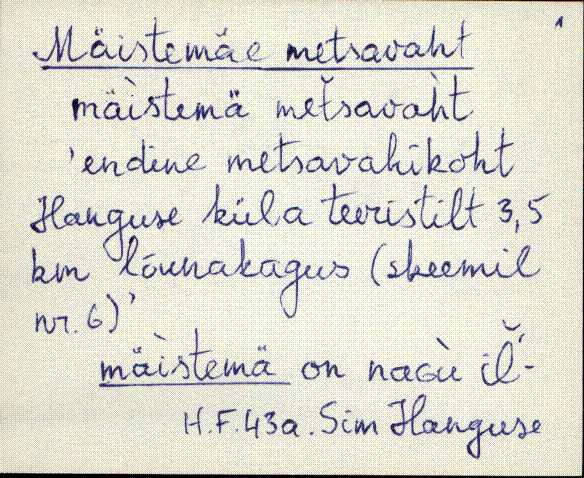 1
Mäistemäe metsavaht
mäìstemä metsavaht
'endine metsavahikoht
Hanguse küla teeristilt 3,5
km lõunakagus (skeemil
nr. 6)'
mäìstemä on
H.F. 43a. Sim Hanguse